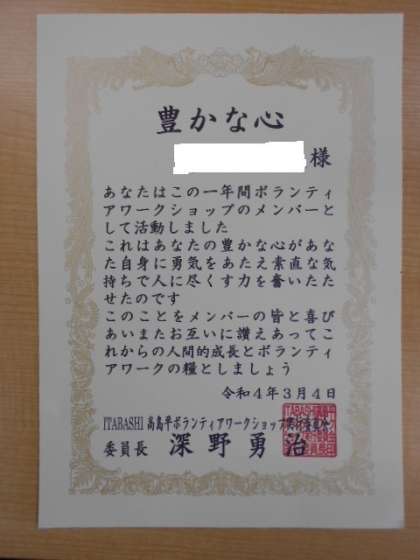 豊かな心
様
あなたはこの一年間ボランティ
アワークショップのメンバーと
して活動しました
これはあなたの豊かな心があな
た自身に勇気をあたえ素直な気
持ちで人に尽くす力を奮いたた
せたのです
このことをメンバーの皆と喜び
あいまたお互いに讃えあってこ
れからの人間的成長とボランティ
アワークの糧としましょう
令和4年3月4日
ITABASHI 高島平ボランティアワークショップ
委員長 深野勇治